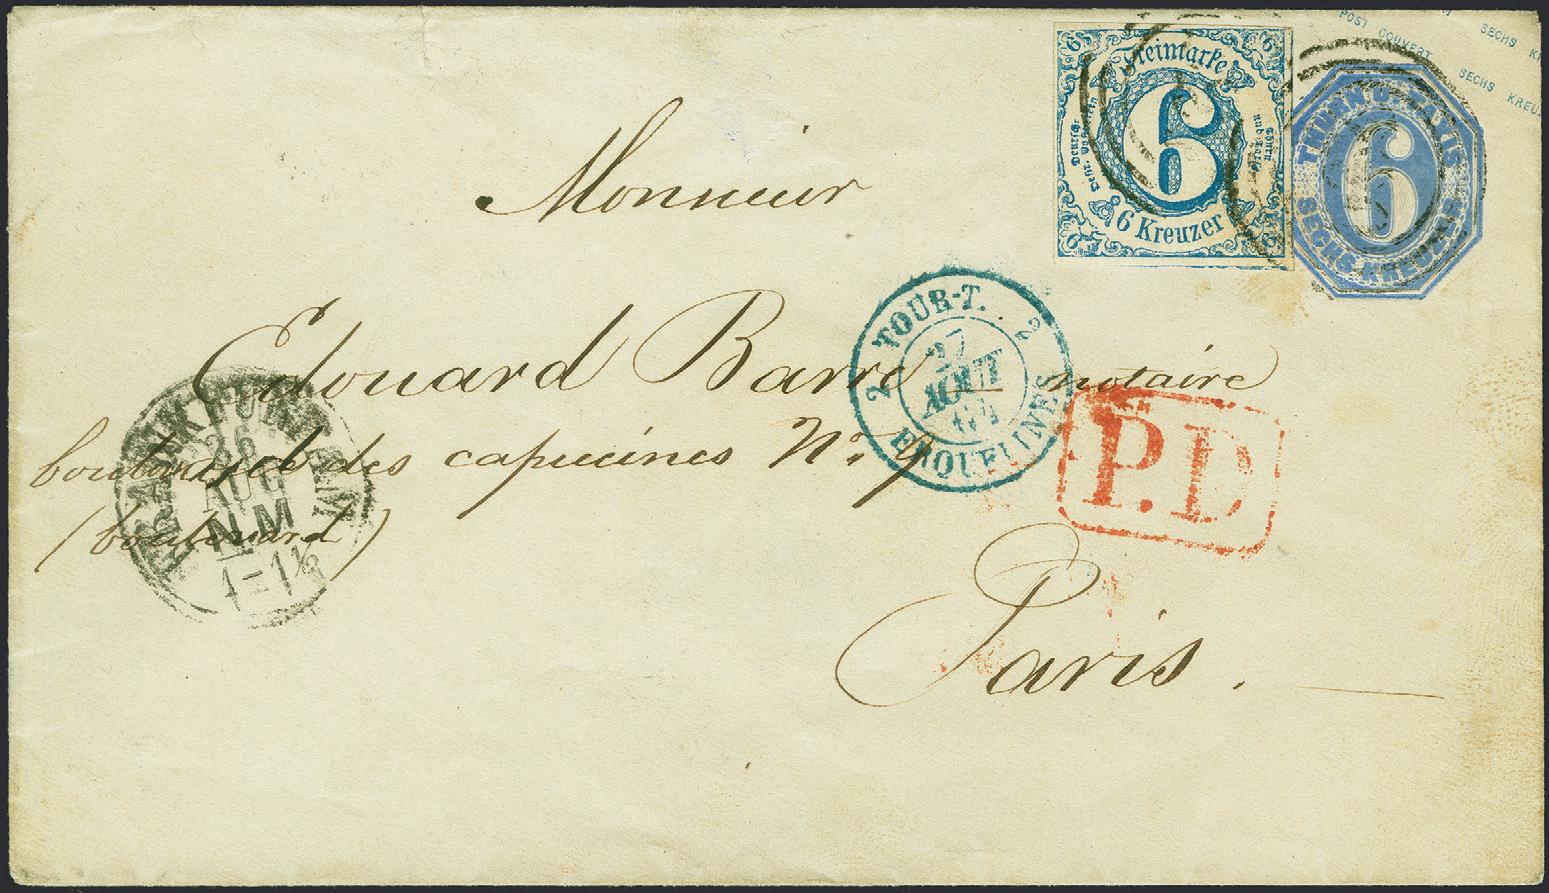 POST COUVERT
SECHS
SECHS KREUZ
6 6
Freimarke
6
6 Kreuzer
6 6
THURN U. TAXIS
6
SECHS KREUZER
Monsieur
Edouard Barre notaire
boulevard des capucines No. 9
(boulevard)
Paris.
2 TOUR-T. 2
27
AOUT
ERQUELINES
P.D.
FRANKFURT A.M.
26
AUG
N.M
1-1½